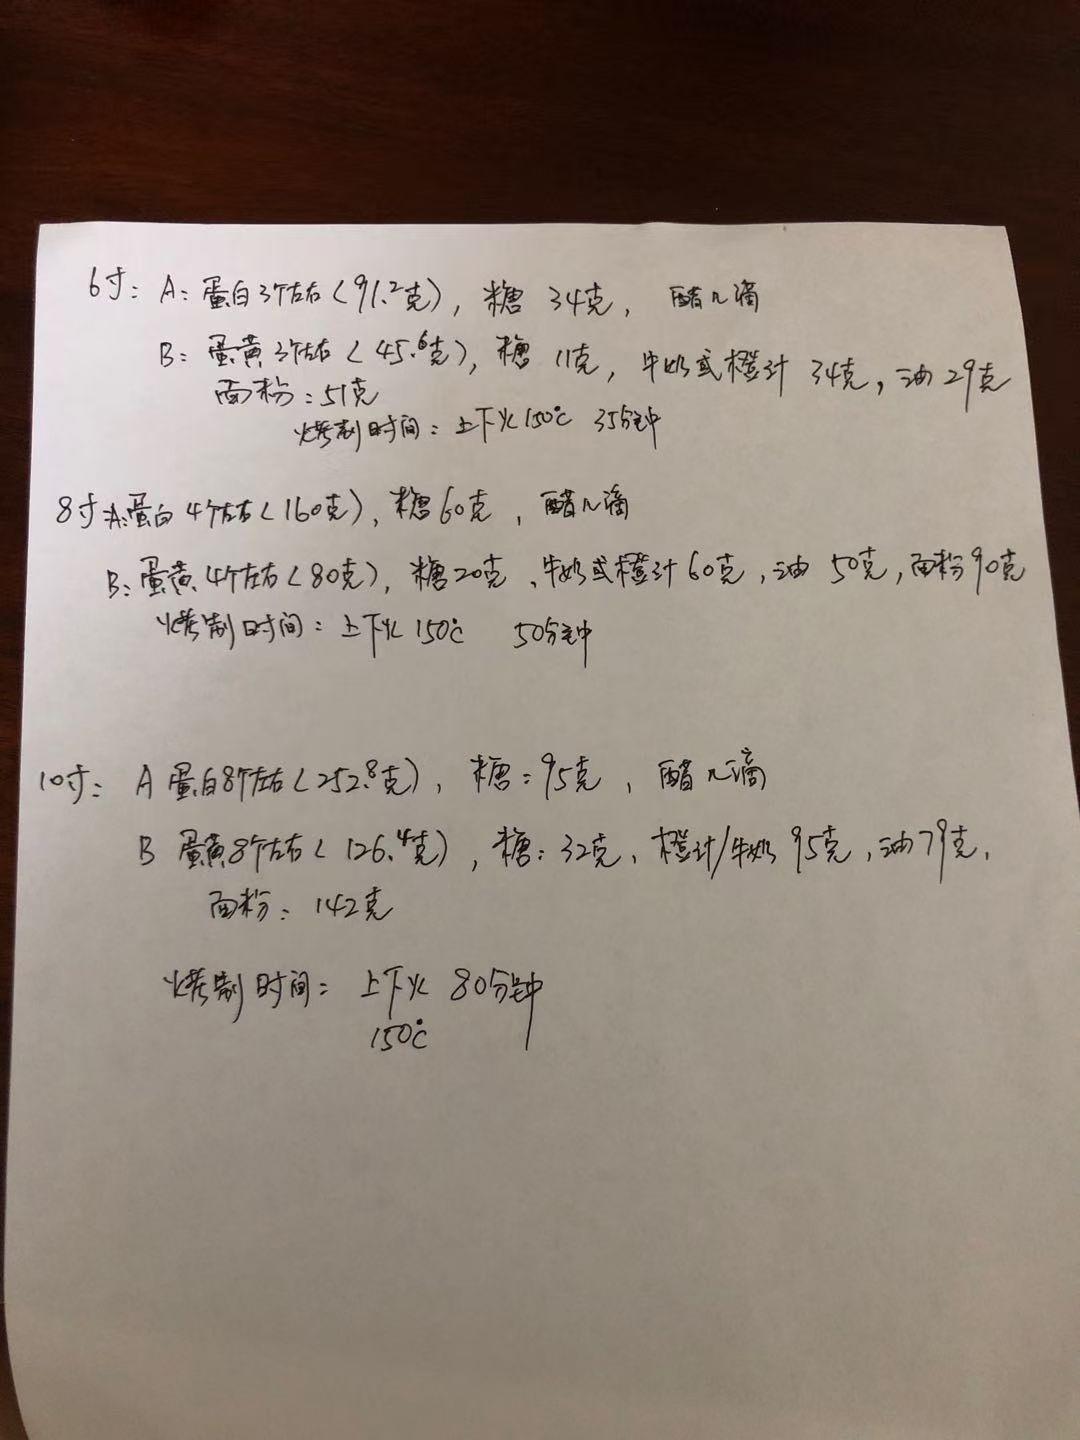 6寸: A: 蛋白3个左右(91.2克), 糖 34克, 醋几滴
B: 蛋黄3个左右(45.6克), 糖 11克, 牛奶或橙汁 34克, 油29克
面粉: 51克
烤制时间: 上下火150℃ 35分钟
8寸:A:蛋白4个左右(160克), 糖60克, 醋几滴
B: 蛋黄4个左右(80克), 糖20克、牛奶或橙汁60克, 油 50克, 面粉90克
烤制时间: 上下火150℃ 50分钟
10寸: A 蛋白8个左右(252.8克), 糖:95克, 醋几滴
B 蛋黄8个左右(126.4克), 糖: 32克、橙汁/牛奶 95克, 油79克,
面粉: 142克
烤制时间: 上下火 80分钟
150℃